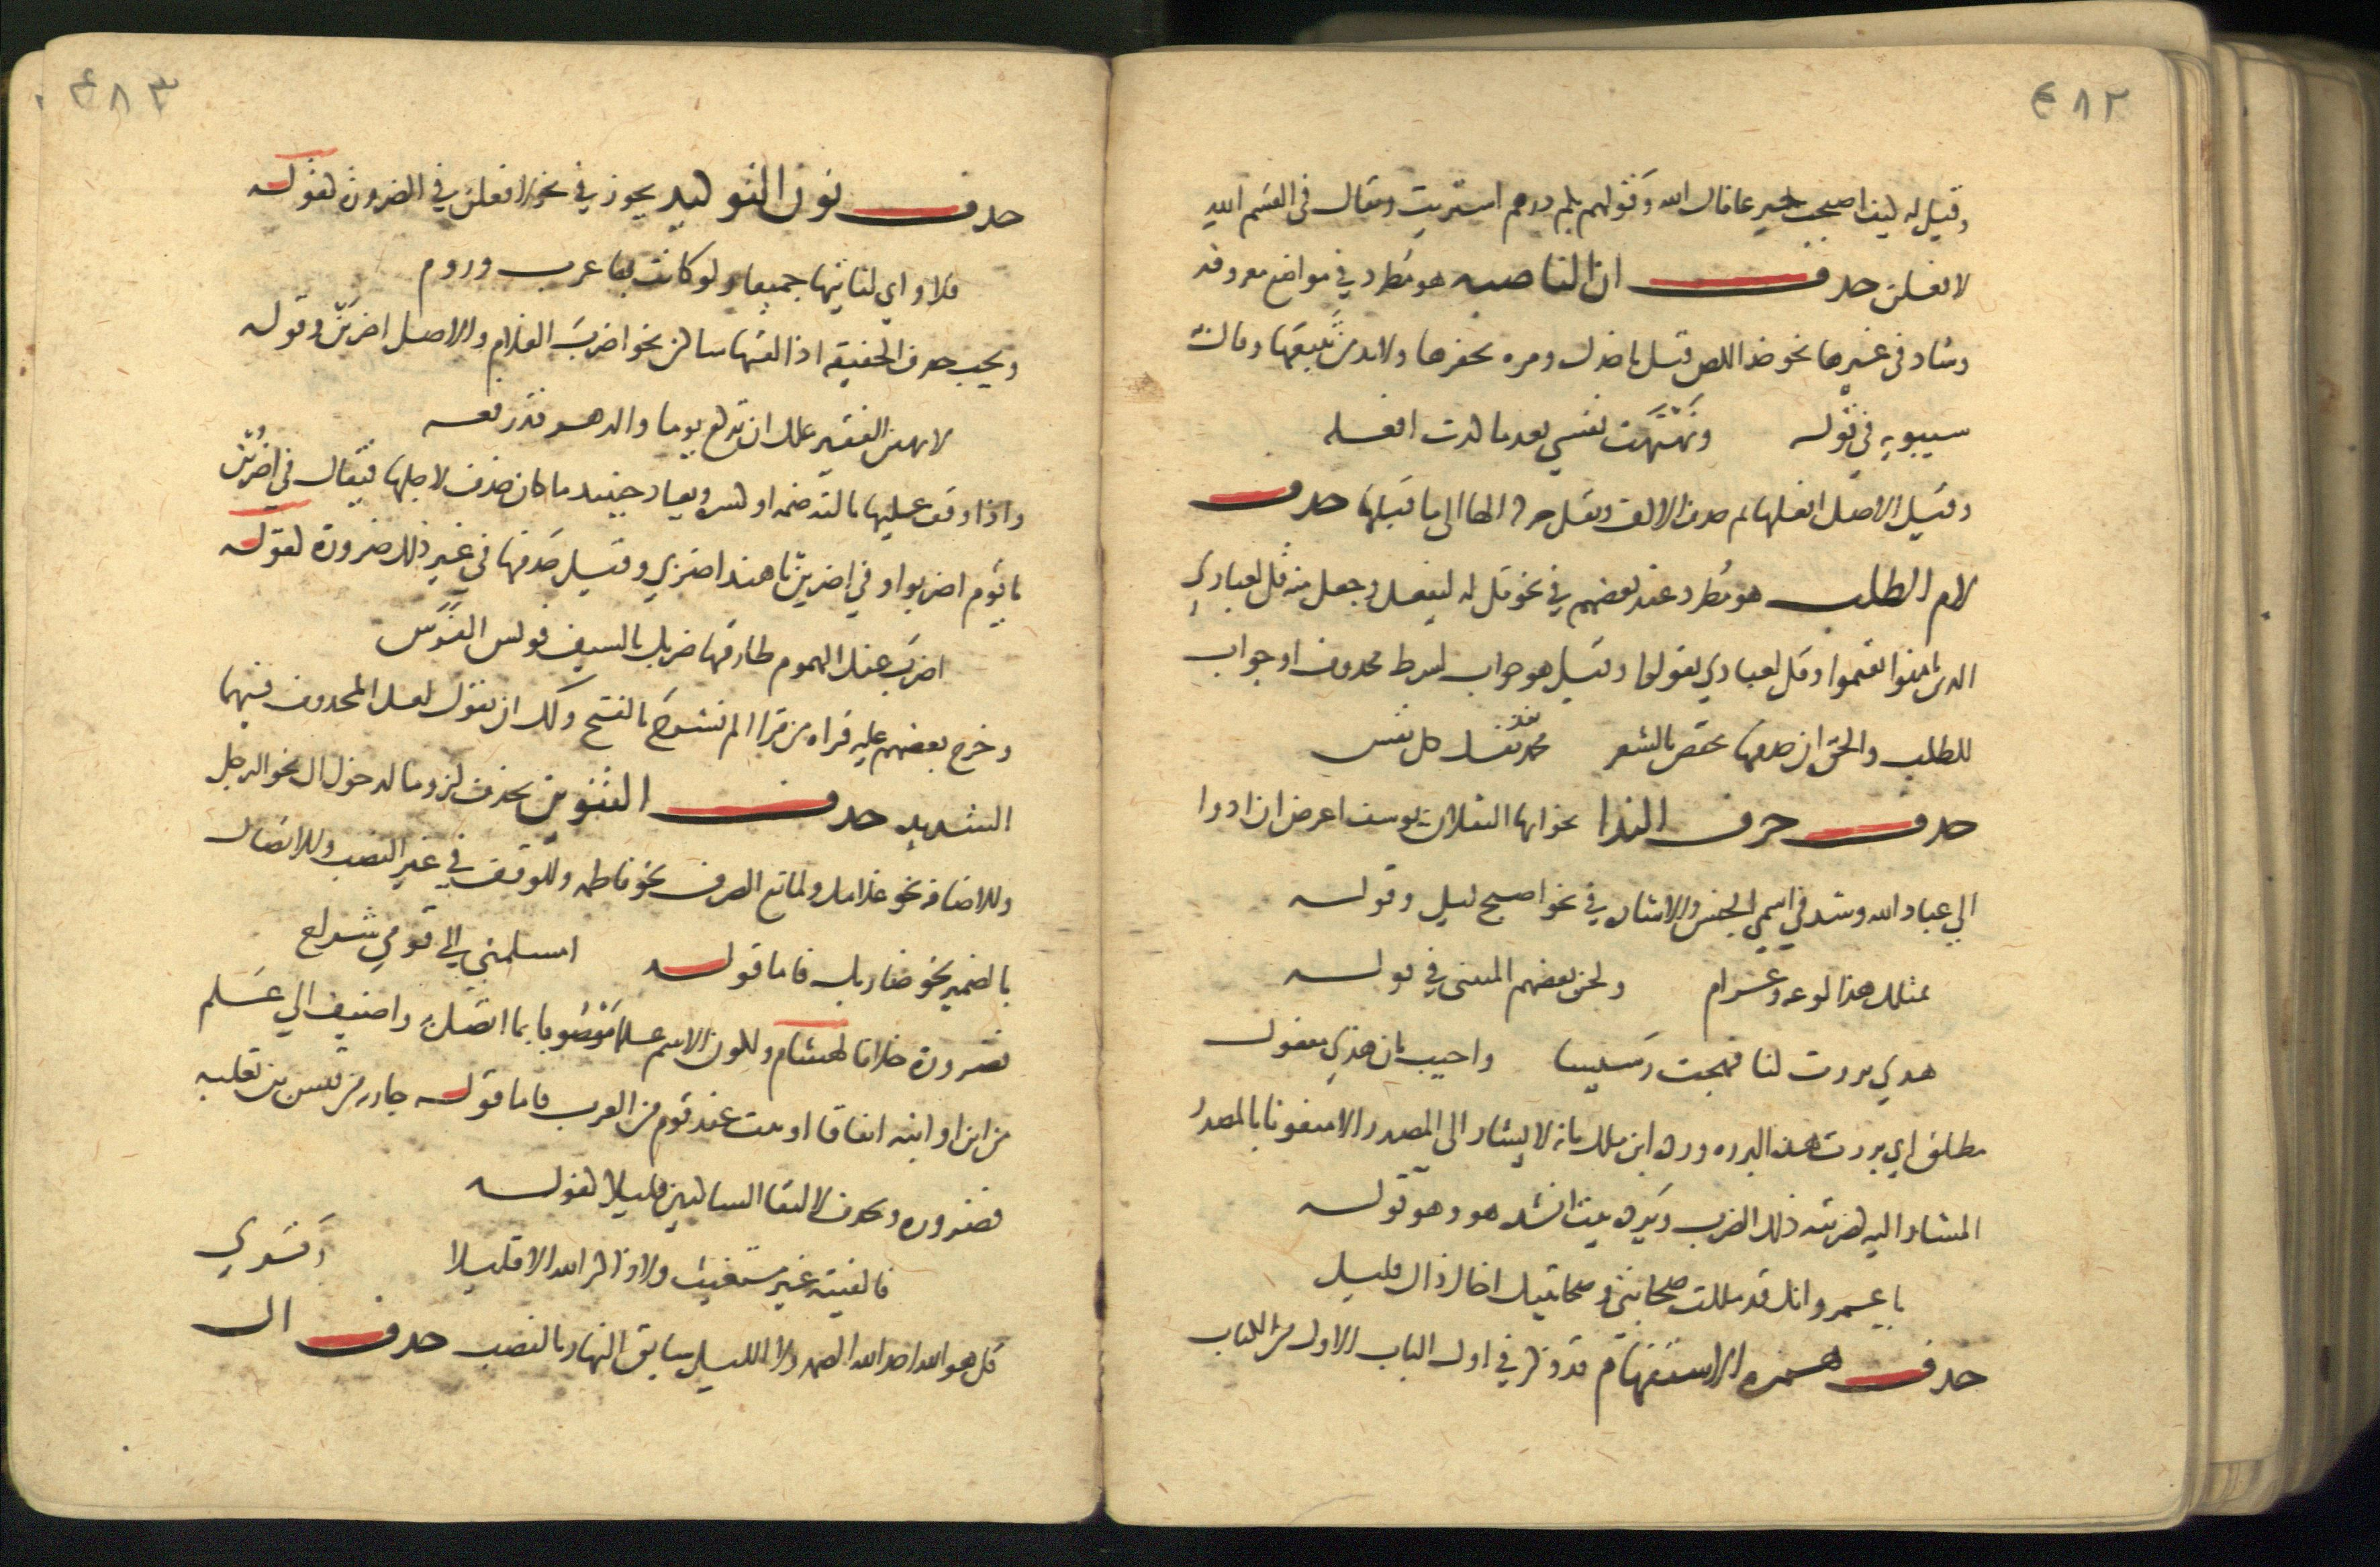 ٤٨٢
وقيل له كيف اصبحت خير عافاك الله وقولهم بكم درهم اشتريت ويقال في القسم الله
لافعلن حذف ان الناصبه هو مطرد في مواضع معروفه
وشاذ في غيرها نحو خذ اللص قبل ياخذك ومره يحفرها ولا بد من تتبعها وقال
سيبويه في قوله ونهنهت نفسي بعد ما كدت افعله
وقيل الاصل افعلها ثم حذف الالف ونقل حركه الها الى ما قبلها حذف
لام الطلب هو مطرد عند بعضهم في نحو قل له ليفعل وجعل منه قل لعبادي
الذين امنوا يقيموا وقل لعبادي يقولوا وقيل هو جواب لشرط محذوف او جواب
للطلب والحق ان حذفها مختص بالشعر محمد تفد نفسك كل نفس
حذف حرف الندا نحو ايها الثقلان يوسف اعرض ان ادوا
الي عباد الله وشذ في اسمي الجنس والاشاره في نحو اصبح ليل وقوله
بمثلك هذا لوعه وغرام ولحن بعضهم المتنبي في قوله
هذي برزت لنا فهجت رسيسا واجيب بان هذي مفعول
مطلق اي برزت هذه البرزه ورده ابن ملك بانه لا يشار الى المصدر الا منعوتا بالمصدر
المشار اليه كضربته ذلك الضرب ويرده بيت انشده هو وهو قوله
يا عمرو انك قد مللت صحابتي وصحابتيك اخال ذاك قليل
حذف همزه الاستفهام قد ذكر في اول الباب الاول من الكتاب
٤٨٣
حذف نون التوكيد يجوز في نحو لافعلن في الضروره كقوله
فلا واي لناتيها جميعا ولو كانت بها عرب وروم
ويجب حذف الخفيفه اذا لقيها ساكن نحو اضرب الغلام والاصل اضربن وقوله
لا تهين الفقير علك ان تركع يوما والدهر قد رفعه
واذا وقف عليها تاليه ضمه او كسره ويعاد حينيد ما كان حذف لاجلها فيقال في اضربن
يا قوم اضربوا وفي اضربن يا هند اضربي وقيل حذفها في غير ذلك ضروره كقوله
اضرب عنك الهموم طارقها ضربك بالسيف قونس الفرس
وخرج بعضهم عليه قراه من قرا الم نشرح بالفتح ولك ان تقول لعل المحذوف فيهما
الشديد حذف التنوين يحذف لزوما لدخول ال نحو الرجل
وللاضافه نحو غلامك ولمانع الصرف نحو فاطمه وللوقف في غير النصب وللاتصال
بالضمير نحو ضاربك فاما قوله امسلمني الي قومي شراح
فضروره خلافا لهشام ولكون الاسم علما موصوفا بما اتصل به واضيف الي علم
من ابن او ابنه اتفاقا او بنت عند قوم من العرب فاما قوله جاريه من قيس بن ثعلبه
فضروره ويحذف لالتقا الساكنين قليلا كقوله
فالفيته غير مستعتب ولا ذاكر الله الا قليلا وقري
قل هو الله احد الله الصمد ولا الليل سابق النهار بالنصب حذف ال